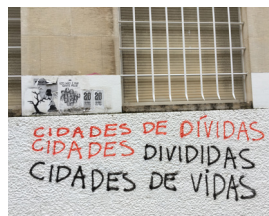 20 20
CIDADES DE DÍVIDAS
CIDADES DIVIDIDAS
CIDADES DE VIDAS